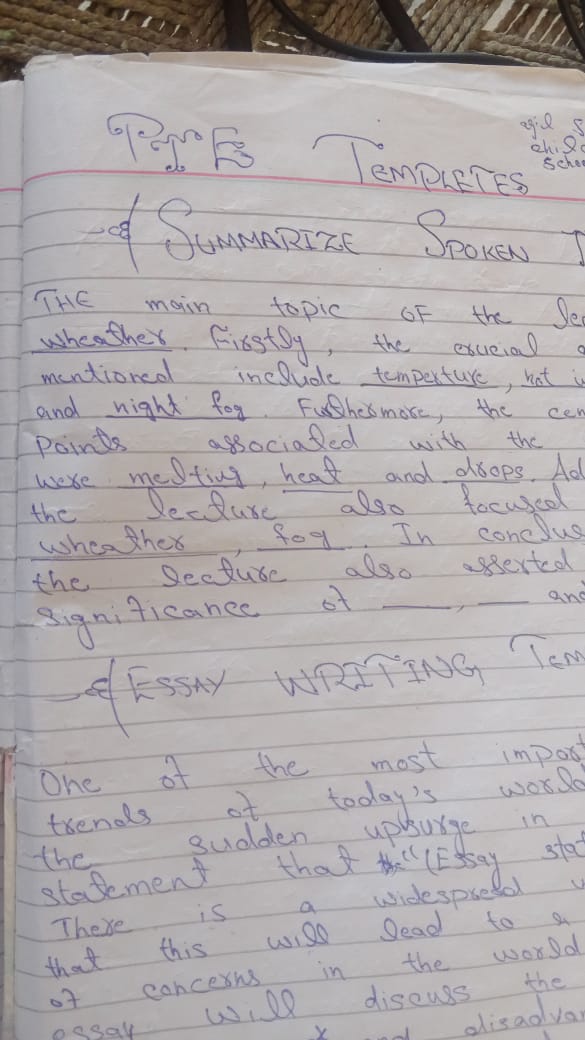 PTE TEMPLETES
SUMMARIZE SPOKEN
THE main topic OF the
wheather. Firstly, the crucial
mentioned include temperture, hot
and night fog. Furthermore, the
Points associated with the
were melting, heat and drops.
the lecture also focused
wheather, fog. In
the lecture also asserted
significance of ___, ___ and
ESSAY WRITING
One of the most
trends of today's world
the sudden upsurge in
statement that "(Essay
There is a widespread
that this will lead to a
of concerns in the world
essay will discuss the
and